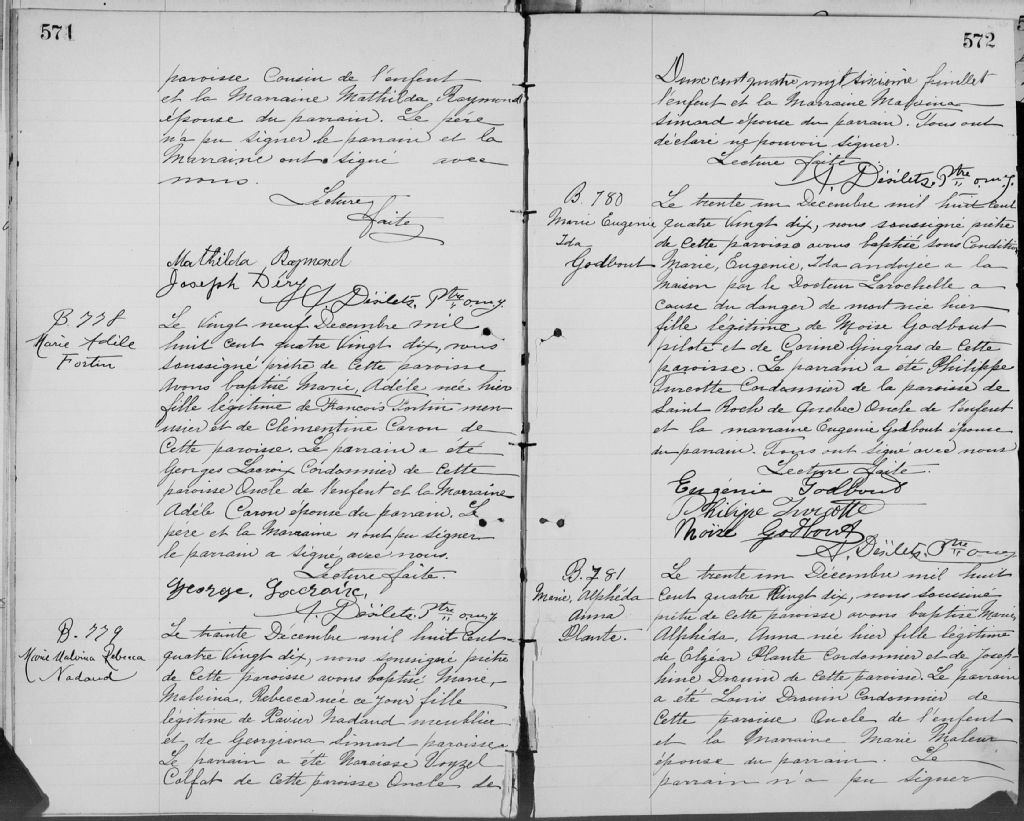 571
paroisse Cousin de l'enfent
et la Marraine Mathilda Raymond
épouse du parrain. Le père
n'a pu signer le parrain et la
Marraine ont signé avec
nous.
Lecture
faite
Mathilda Raymond
Joseph Déry
A. Désilets, Ptre
B. 778
Marie Adèle
Fortin
Le Vingt neuf Decembre mil
huit cent quatre Vingt dix, nous
soussigné prêtre de Cette paroisse
avons baptisé Marie, Adèle née hier
fille légitime de Francois Fortin men
usier et de Clémentine Caron de
Cette paroisse. Le parrain a été
Georges Lacroix Cordonnier de Cette
paroisse Oncle de l'enfent et la Marraine
Adèle Caron épouse du parrain. Le
père et la Marraine n'ont pu signer
le parrain a signé avec nous.
Lecture faite.
George, Lacroix,
A. Désilets, Ptre
B. 779
Marie Malvina Rebecca
Nadaud
Le trainte Décembre mil huit Cent
quatre Vingt dix, nous soussigné prêtre
de Cette paroisse avons baptisé Marie,
Malvina, Rebecca née ce jour fille
légitime de Xavier Nadaud meublier
et de Georgiana Simard paroisse
Le parrain a été Narcisse Voyzel
Calfat de Cette paroisse Oncle de
572
Deux cent quatre vingt sixième feuillet
l'enfent et la Marraine Malvina
Simard épouse du parrain. Tous ont
déclaré ne pouvoir signer.
Lecture faite
A. Désilets, Ptre
B. 780
Marie Eugenie
Ida
Godbout
Le trente un Décembre mil huit Cent
quatre Vingt dix, nous soussigné prêtre
de Cette paroisse avons baptisé sous Condition
Marie, Eugenie, Ida andoyée a la
maison par le Docteur Larochelle a
cause du danger de mort née hier
fille légitime de Moise Godbout
pilote et de Corine Gingras de Cette
paroisse. Le parrain a été Philippe
Turcotte Cordonnier de la paroisse de
Saint Roch de Quebec Oncle de l'enfent
et la marraine Eugenie Godbout épouse
du parrain. Tous ont signé avec nous
Lecture faite.
Eugénie Godbout
Philippe Turcotte
Moïse Godbout
A. Désilets, Ptre
B. 781
Marie, Alphéda
Anna
Plante.
Le trente un Décembre mil huit
Cent quatre Vingt dix, nous soussiné
prêtre de Cette paroisse avons baptisé Marie,
Alphéda, Anna née hier fille légitime
de Elzéar Plante Cordonnier et de Josep-
hine Drouin de Cette paroisse. Le parrain
a été Louis Drouin Cordonnier de
Cette paroisse Oncle de l'enfent
et la Marraine Marie
épouse du parrain. Le
parrain n'a pu signer